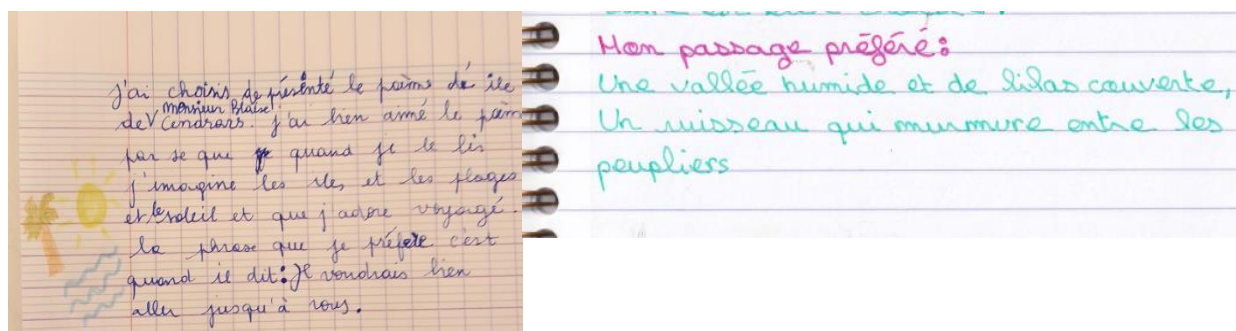 j'ai choisis de présenté le poème dé ile
de Monsieur Blaise Cendrars. j'ai bien aimé le poèm
par se que quand je le lis
j'imagine les iles, et les plages
et le soleil et que j'adore voyagé.
la phrase que je préfere c'est
quand il dit: Je voudrais bien
aller jusqu'à vous.
Mon passage préféré:
Une vallée humide et de lilas couverte,
Un ruisseau qui murmure entre les
peupliers